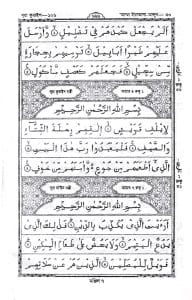 اَلَمْ يَجْعَلْ كَيْدَهُمْ فِيْ تَضْلِيْلٍ ۝ وَّاَرْسَلَ
عَلَيْهِمْ طَيْرًا اَبَابِيْلَ ۝ تَرْمِيْهِمْ بِحِجَارَةٍ
مِّنْ سِجِّيْلٍ ۝ فَجَعَلَهُمْ كَعَصْفٍ مَّاْكُوْلٍ ۝
بِسْمِ اللهِ الرَّحْمٰنِ الرَّحِيْمِ
لِاِيْلٰفِ قُرَيْشٍ ۝ اٖلٰفِهِمْ رِحْلَةَ الشِّتَآءِ
وَالصَّيْفِ ۝ فَلْيَعْبُدُوْا رَبَّ هٰذَا الْبَيْتِ ۝
الَّذِيْٓ اَطْعَمَهُمْ مِّنْ جُوْعٍ وَّاٰمَنَهُمْ مِّنْ خَوْفٍ ۝
بِسْمِ اللهِ الرَّحْمٰنِ الرَّحِيْمِ
اَرَءَيْتَ الَّذِيْ يُكَذِّبُ بِالدِّيْنِ ۝ فَذٰلِكَ الَّذِيْ
يَدُعُّ الْيَتِيْمَ ۝ وَلَا يَحُضُّ عَلٰى طَعَامِ الْمِسْكِيْنِ ۝
فَوَيْلٌ لِّلْمُصَلِّيْنَ ۝ الَّذِيْنَ هُمْ عَنْ صَلَاتِهِمْ
মঞ্জিল ৭